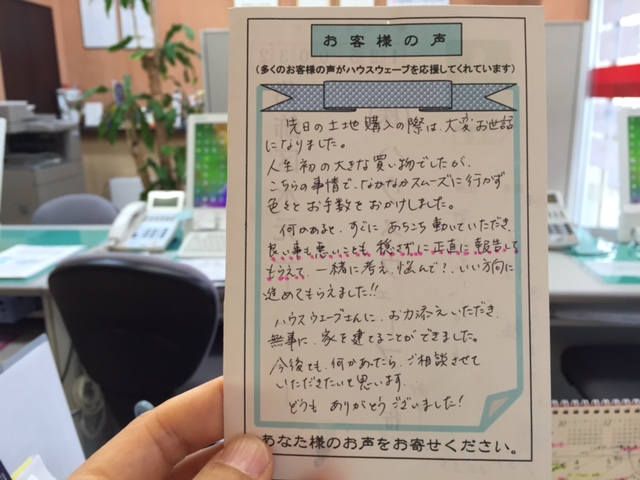 お客様の声
(多くのお客様の声がハウスウェーブを応援してくれています)
先日の土地購入の際は、大変お世話
になりました。
人生初の大きな買い物でしたが、
こちらの事情で、なかなかスムーズに行かず
色々とお手数をおかけしました。
何かあると、すぐに あちこち動いていただき、
良い事も悪いことも 穏さずに正直に報告して
もらえて、一緒に考え、悩んで?、いい方向に
進めてもらえました!!
ハウスウェーブさんに、お力添えいただき、
無事に、家を建てることができました。
今後とも、何かあったら、ご相談させて
いただきたいと思います。
どうも ありがとうございました!
あなた様のお声をお寄せください。